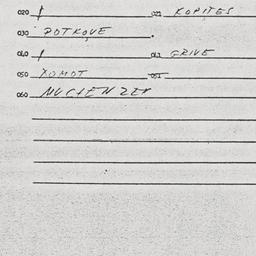 020 / 021 KOPITES
030 POTKOVE
040 / 041 GRIVE
050 ХОМОТ 051 —
060